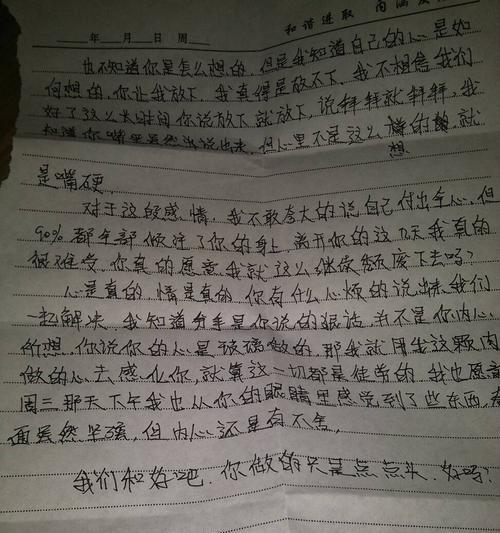 和谐进取
年 月 日 周
也不知道你是怎么想的，但是我知道自己的心是如
何想的，你让我放下，我真得是放不下，我不相信我们
好了这么长时间你说放下就放下，说拜拜就拜拜，我
知道你嘴里虽然出说出来，但心里不是这么想的，就
是嘴硬。
对于这段感情，我不敢夸大的说自己付出全心，但
90%都全部倾注了你的身上 离开你的这几天我真的
很难受，你真的愿意我就这么继续颓废下去吗？
心是真的，情是真的，你有什么心烦的说出来，我们
一起解决，我知道分手是你说的狠话，并不是你内心
所想，你说你的心是 做的，那我就用我这颗肉
做的心去感化你，就算这一切都是徒劳的，我也愿意
周三那天下午我也从你的眼睛里感觉到了些东西，表
面虽然坚强，但内心还是有不舍。
我们和好吧，你做的只是点点头，好吗？